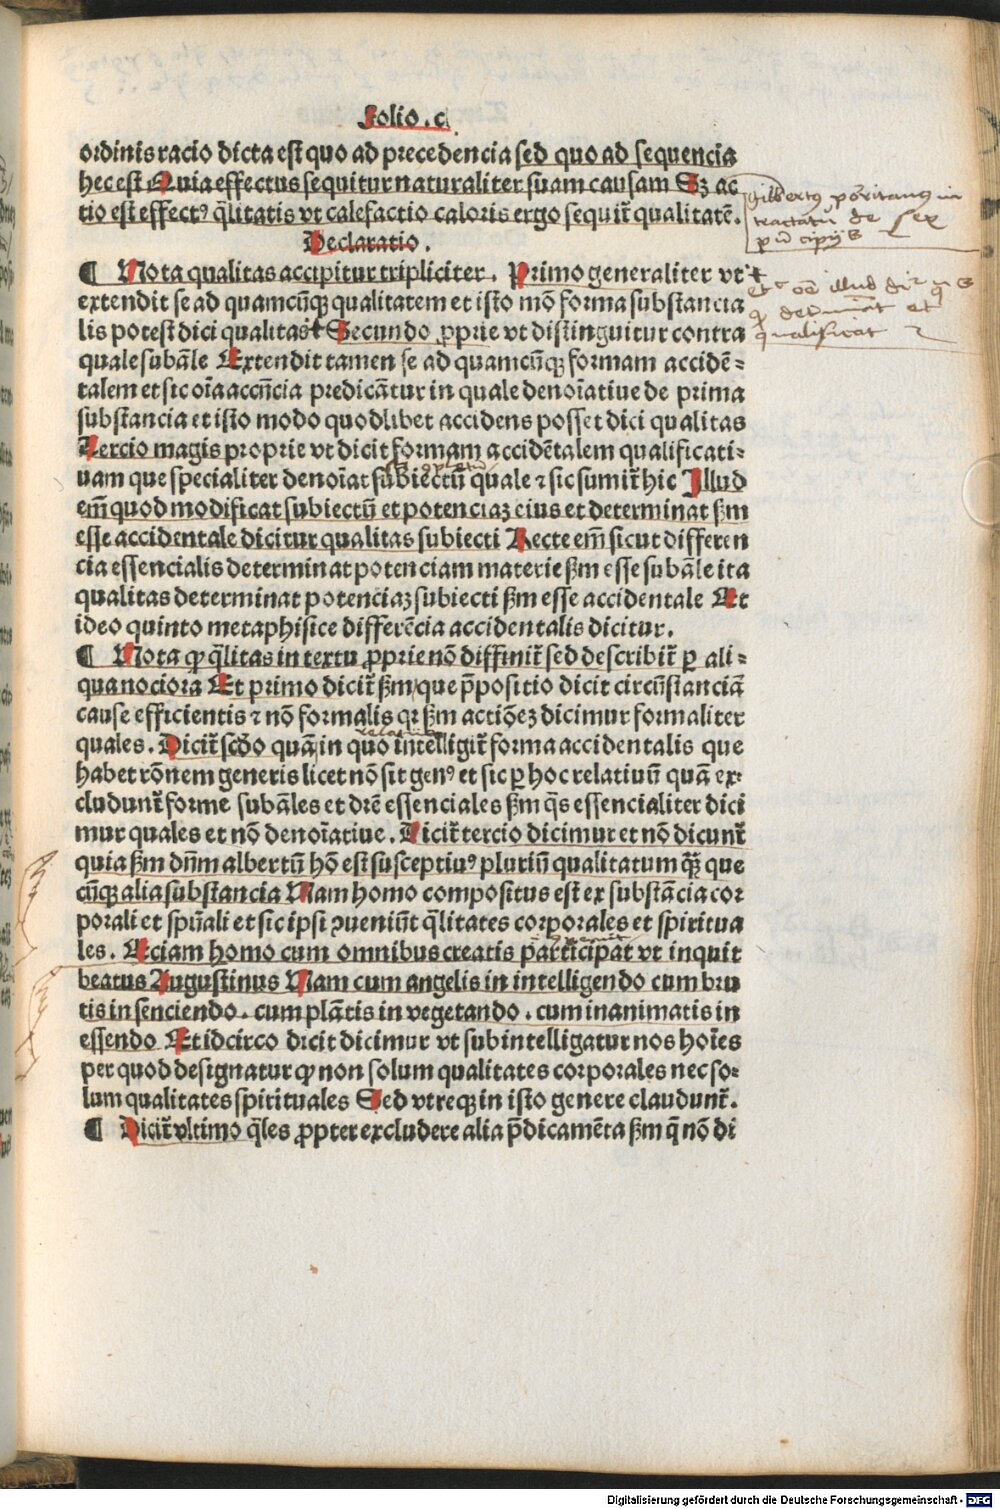 Folio .c.
ordinis racio dicta est quo ad precedencia sed quo ad sequencia
hec est Quia effectus sequitur naturaliter suam causam Sꝫ ac
tio est effectꝰ q̄litatis vt calefactio caloris ergo sequit᷑ qualitatē.
Declaratio.
¶ Nota qualitas accipitur tripliciter. Primo generaliter vt
extendit se ad quamcūqꝫ qualitatem et isto mō forma substancia
lis potest dici qualitas Secundo ꝓprie vt distinguitur contra
quale subāle Extendit tamen se ad quamcūqꝫ formam accidē⸗
talem et sic oīa accn̄cia predicātur in quale denoīatiue de prima
substancia et isto modo quodlibet accidens posset dici qualitas
Tercio magis proprie vt dicit formam accidētalem qualificati⸗
uam que specialiter denoīat subiectū quale ⁊ sic sumit᷑ hic Illud
em̄ quod modificat subiectū et potenciaꝫ eius et determinat ẜm
esse accidentale dicitur qualitas subiecti Recte em̄ sicut differen
cia essencialis determinat potenciam materie ẜm esse subāle ita
qualitas determinat potenciaꝫ subiecti ẜm esse accidentale Et
ideo quinto metaphisice differēcia accidentalis dicitur.
¶ Nota ꝙ q̄litas in textu ꝓprie nō diffinit᷑ sed describit᷑ ꝑ ali⸗
qua nociora Et primo dicit᷑ ẜm que p̄positio dicit circūstanciā
cause efficientis ⁊ nō formalis qꝛ ẜm actiōeꝫ dicimur formaliter
quales. Dicit᷑ scďo quā in quo intelligit᷑ forma accidentalis que
habet rōnem generis licet nō sit genꝰ et sic ꝑ hoc relatiuū quā ex⸗
cludunt᷑ forme subāles et drē essenciales ẜm q̄s essencialiter dici
mur quales et nō denoīatiue. Dicit᷑ tercio dicimur et nō dicunt᷑
quia ẜm dn̄m albertū hō est susceptiuꝰ pluriū qualitatum q̄ꝫ que
cūqꝫ alia substancia Nam homo compositus est ex substācia cor
porali et spūali et sic ipsi ꝯueniūt q̄litates corporales et spiritua
les. Eciam homo cum omnibus creatis participat vt inquit
beatus Augustinus Nam cum angelis in intelligendo cum bru
tis in senciendo. cum plātis in vegetando. cum inanimatis in
essendo Et idcirco dicit dicimur vt subintelligatur nos hoīes
per quod designatur ꝙ non solum qualitates corporales nec so⸗
lum qualitates spirituales Sed vtreqꝫ in isto genere claudunt᷑.
¶ Dicit᷑ vltimo q̄les ꝓpter excludere alia p̄dicamēta ẜm q̄ nō di
gilbertꝰ porritanꝰ in
tractatu de sex
principijs
illud
et
qualificat
Digitalisierung gefördert durch die Deutsche Forschungsgemeinschaft - DFG